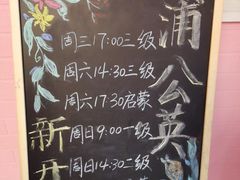 蒲公英
周三17:00三级
周六14:30三级
周六17:30启蒙
周日9:00一级
周日14:30二级
新开